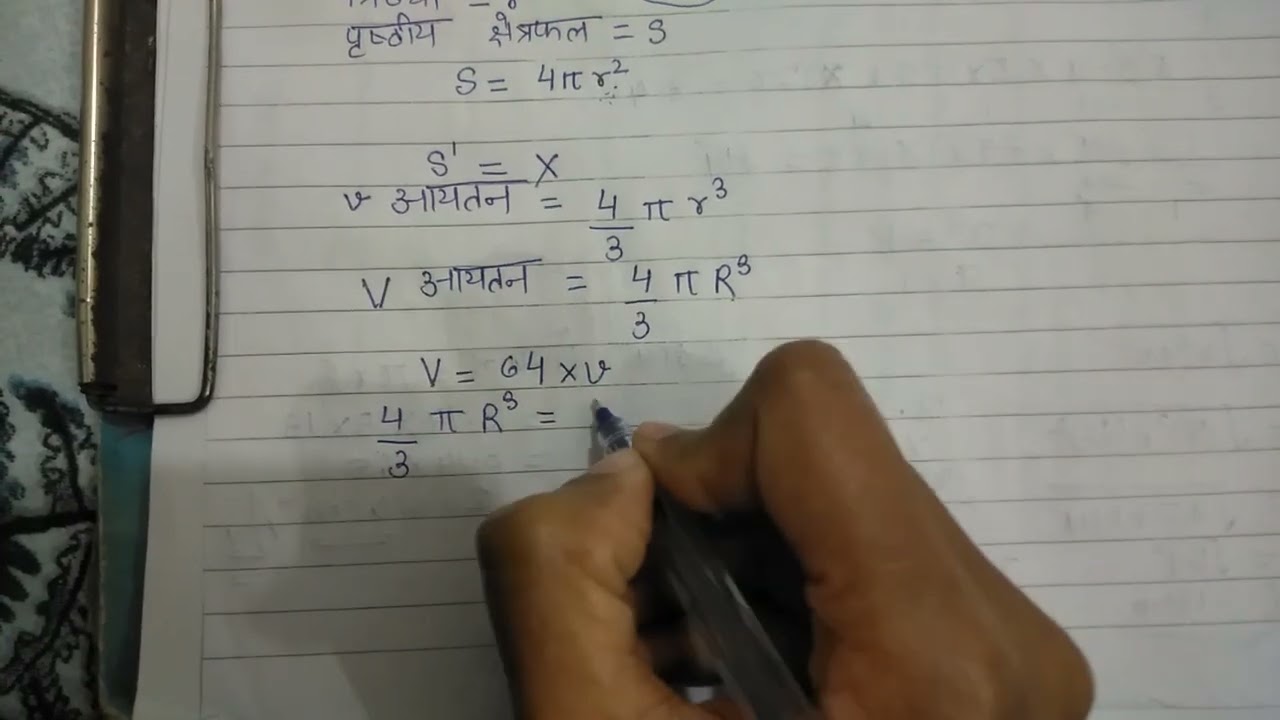 पृष्ठीय क्षेत्रफल = S
S = 4π r²
S' = X
v आयतन = 4/3 π r³
V आयतन = 4/3 π R³
V = 64 × v
4/3 π R³ =